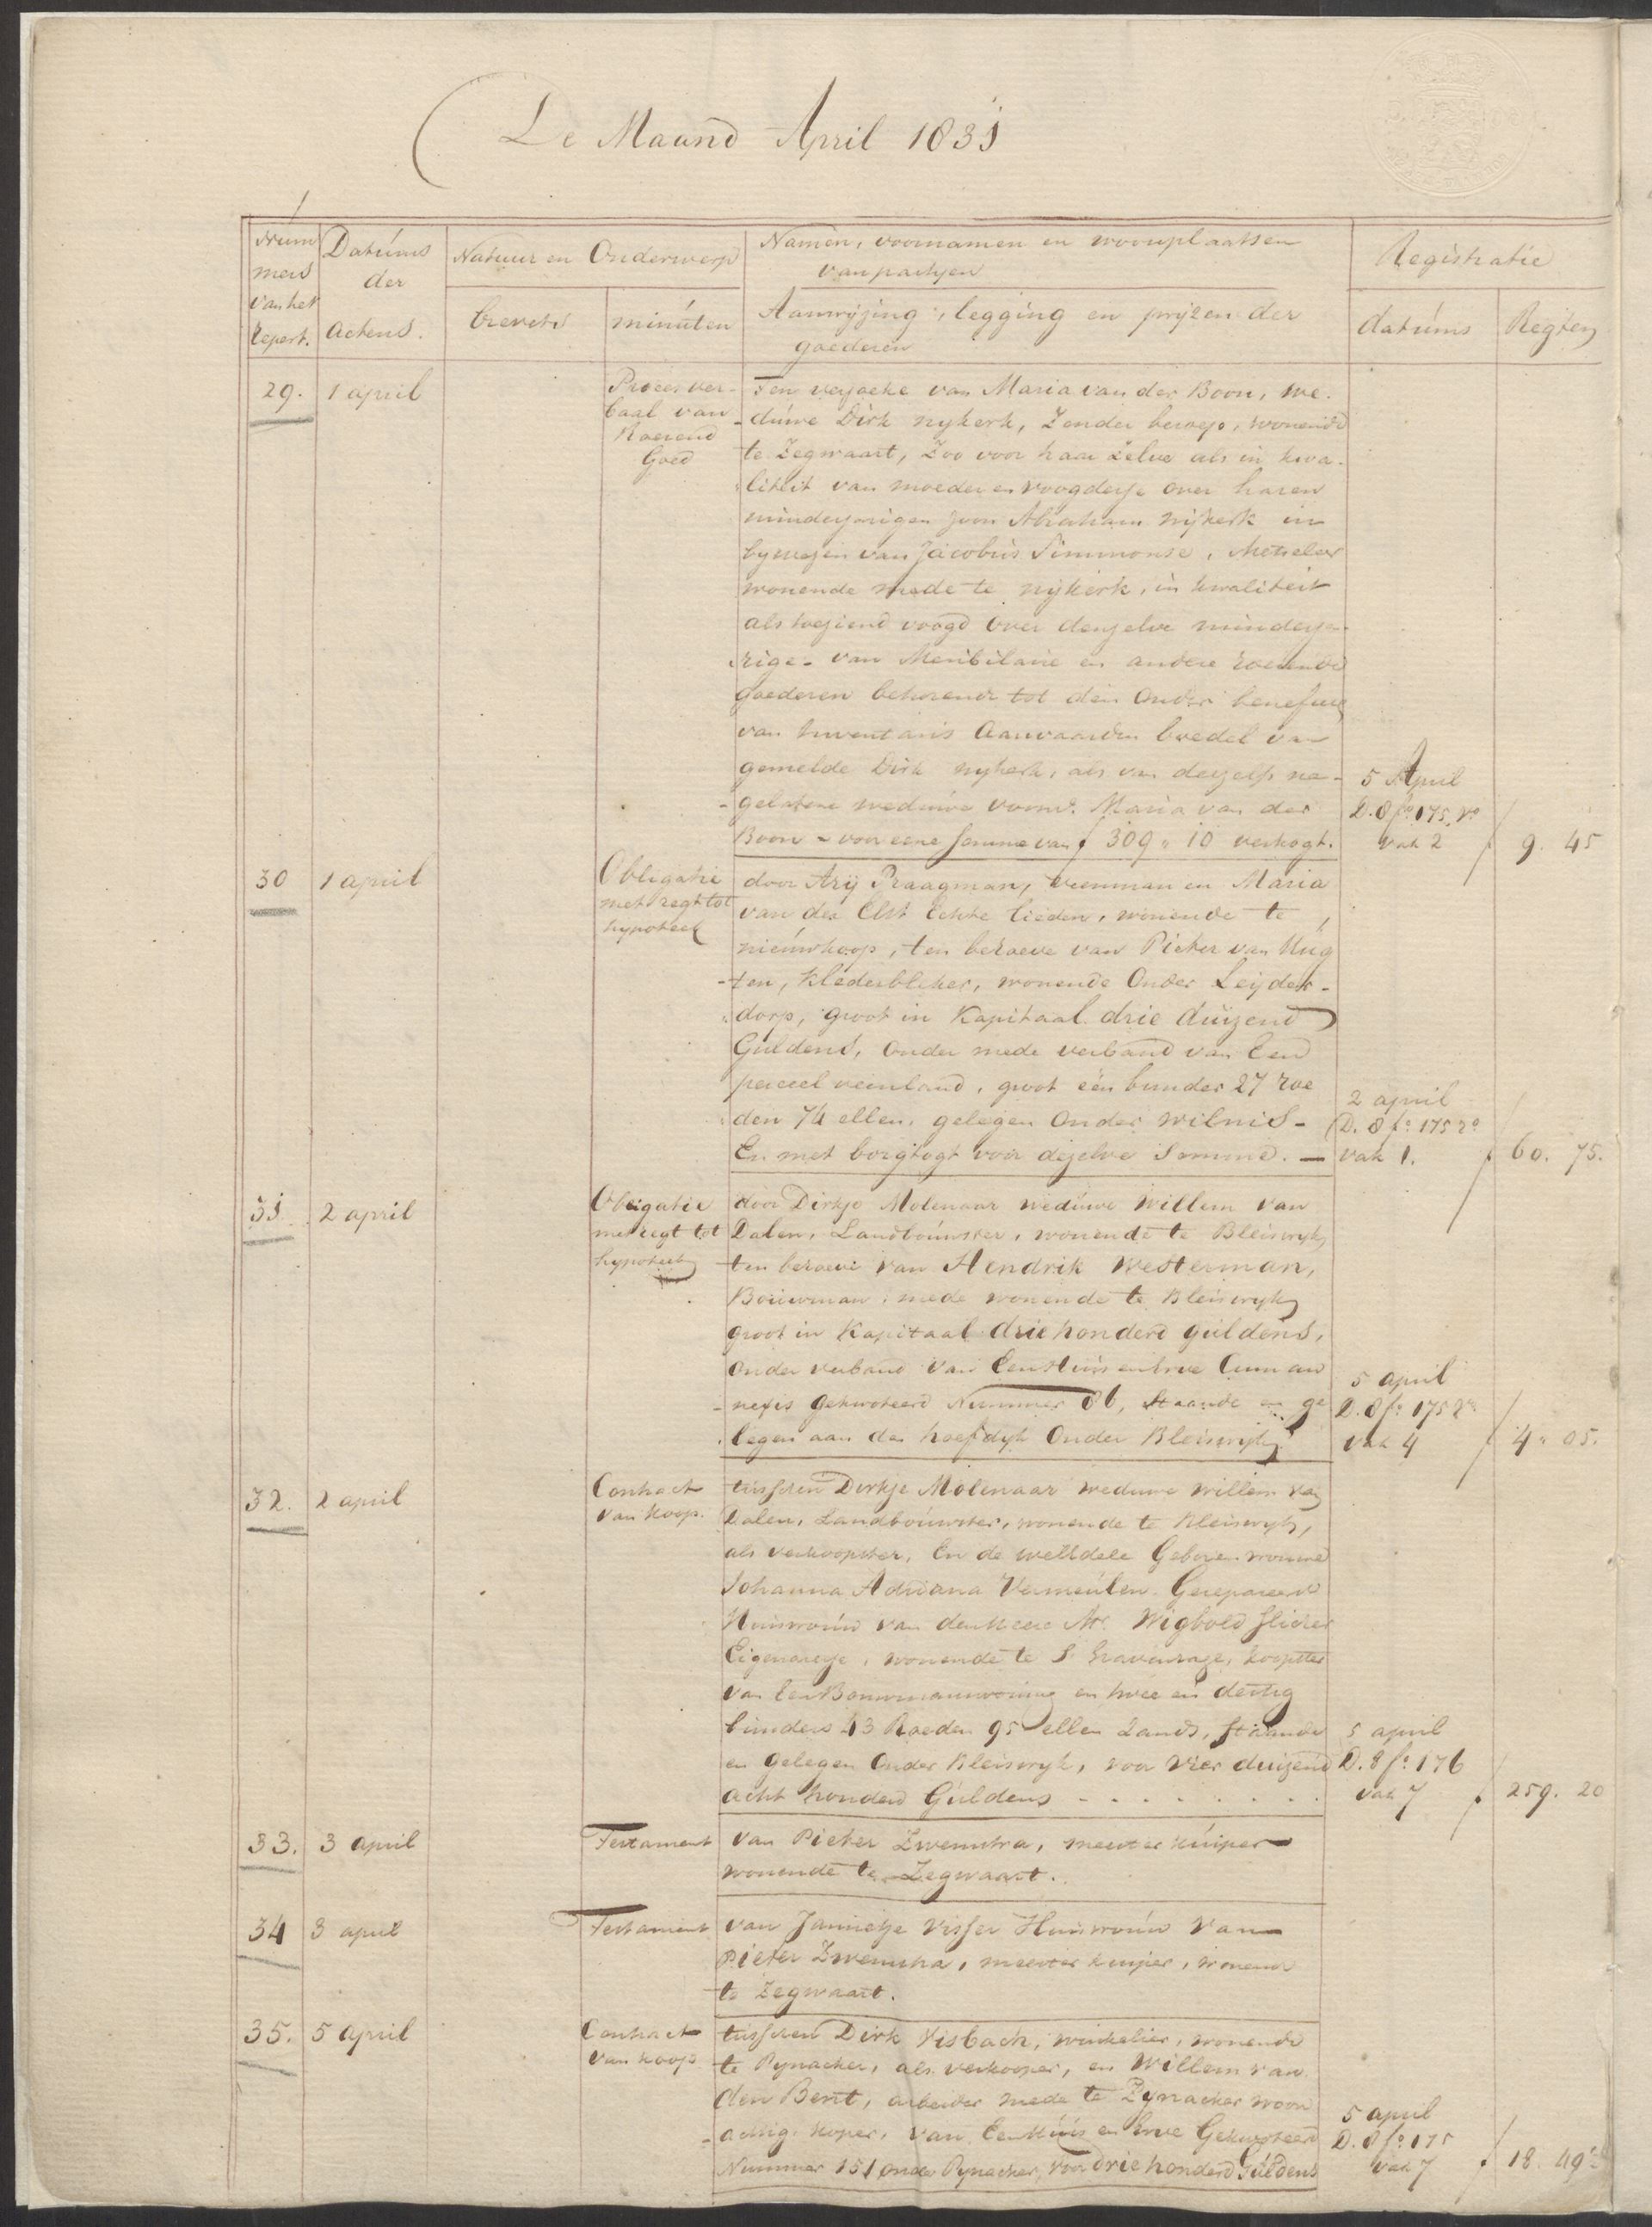 De Maand April 1831
Num
mers
van het
Repert.
Datums
der
actens.
Natuur en Onderwerp
brevets
minuten
Namen, voornamen en woonplaatsen
van partyen
Aanwyzing, legging en pryzen der
goederen
Registratie
datums
Regten
29.
1 april
Proces ver-
baal van
Roerend
Goed
Ten verzoeke van Maria van der Boon, we-
duwe Dirk nykerk, Zonder beroep, wonende
te Zegwaart, Zoo voor haar Zelve als in kwa-
liteit van moeder en voogdesse over haren
minderjarigen zoon Abraham nijkerk in
bywezen van Jacobus Simmonse, Metselaar
wonende mede te nijkerk, in kwaliteit
als toeziend voogd over denzelve minderja-
rige - van Meubilaire en andere roerende
goederen behorende tot den Onder benefice
van Inventaris Aanvaarden boedel van
gemelde Dirk nykerk, als van deszelfs na-
gelatene weduwe voorn. Maria van der
Boon - voor eene somme van f 309 " 10 verkogt.
5 April
D. 8 fo. 175. Vo
vak 2
f 9. 45
30
1 april
Obligatie
met regt tot
hypoteek
door Arij Praagman, veenman en Maria
van der Elst Echte lieden, wonende te
nieuwkoop, ten behoeve van Pieter van
ten, klederbleker, wonende Onder Leyder-
dorp, groot in Kapitaal drie duizend
Guldens, Onder mede verband van Een
perceel veenland, groot één bunder 27 roe
den 74 ellen, gelegen Onder wilnis -
En met borgtogt voor dezelve Somme. -
2 april
D. 8 fo. 175 ro
vak 1.
f 60. 75.
31
2 april
Obligatie
met regt tot
hypoteek
door Dirkje Molenaar weduwe Willem van
Dalen, Landbouwster, wonende te Bleiswyk,
ten behoeve van Hendrik Westerman,
Bouwman, mede wonende te Bleiswyk
groot in Kapitaal driehonderd guldens,
Onder verband van Een Huis en Erve Cum an
nexis gekwoteerd Nummer 86, Staande en ge
legen aan den hoefdyk Onder Bleiswyk
5 april
D. 8 fo. 175 ro
vak 4
f 4 " 05.
32.
2 april
Contract
van koop.
tusschen Dirkje Molenaar weduwe willem van
Dalen, Landbouwster, wonende te Bleiswyk,
als verkoopster, En de weledele Geboren vrouwe
Johanna Adriana Vermeulen Gesepareerd
Huisvrouw van den Heere Mr. Wigbold Slicher
Eigenaresse, wonende te S Gravenhage, koopster
van Een Bouwmanswoning en twee en dertig
bunders 43 Roeden 95 ellen Lands, staande
en gelegen Onder Bleiswyk, voor Vier duizend
acht honderd Guldens - - - - - - -
5 april
D. 8 fo. 176
vak 7
f 259. 20
33.
3 april
Testament
van Pieter Zweenstra, meester kuiper
wonende te Zegwaart.
34
3 april
Testament
van Jannetje Visser Huisvrouw van
Pieter Zweenstra, meester kuiper, wonend
te Zegwaart.
35.
5 april
Contract
van koop
tusschen Dirk Visbach, winkelier, wonende
te Pynacker, als verkooper, en Willem van
den Bent, arbeider mede te Pynacker woon
achtig. koper, van Een Huis en Erve Gekwoteerd
Nummer 151 onder Pynacker, voor driehonderd Guldens
5 april
D. 8 fo. 175
vak 7
f 18. 49